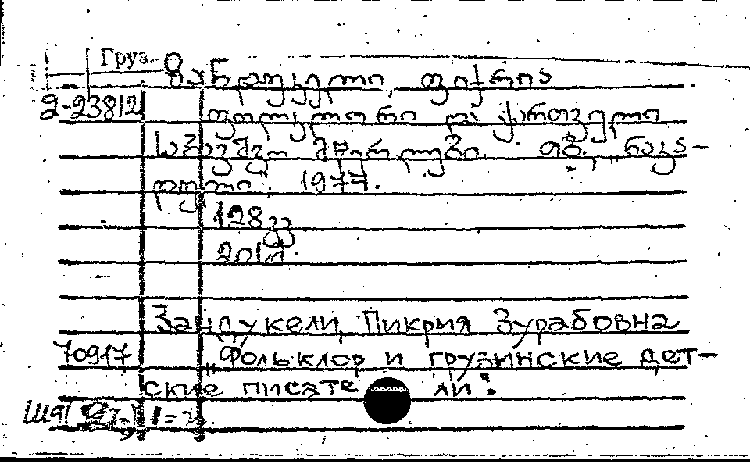 Груз.
ზანდუკელი ფიქრია
2-23812 ფოლკლორი და ქართველი
საბავშვო მწერლები. თბ., "ნაკა-
დული". 1977.
128 გვ
Зандукели, Пикрия Зурабовна
70917 "Фольклор и грузинские дет-
ские писатели".